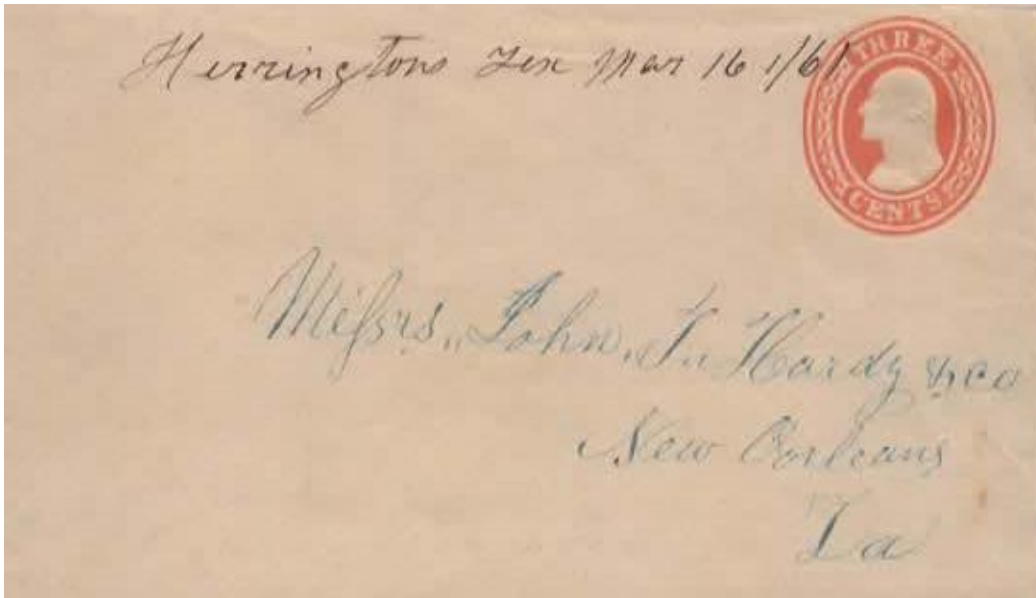 Herringtons Tex Mar 16 1/61
THREE
CENTS
Messrs, John, F. Hardy & co
New Orleans
La